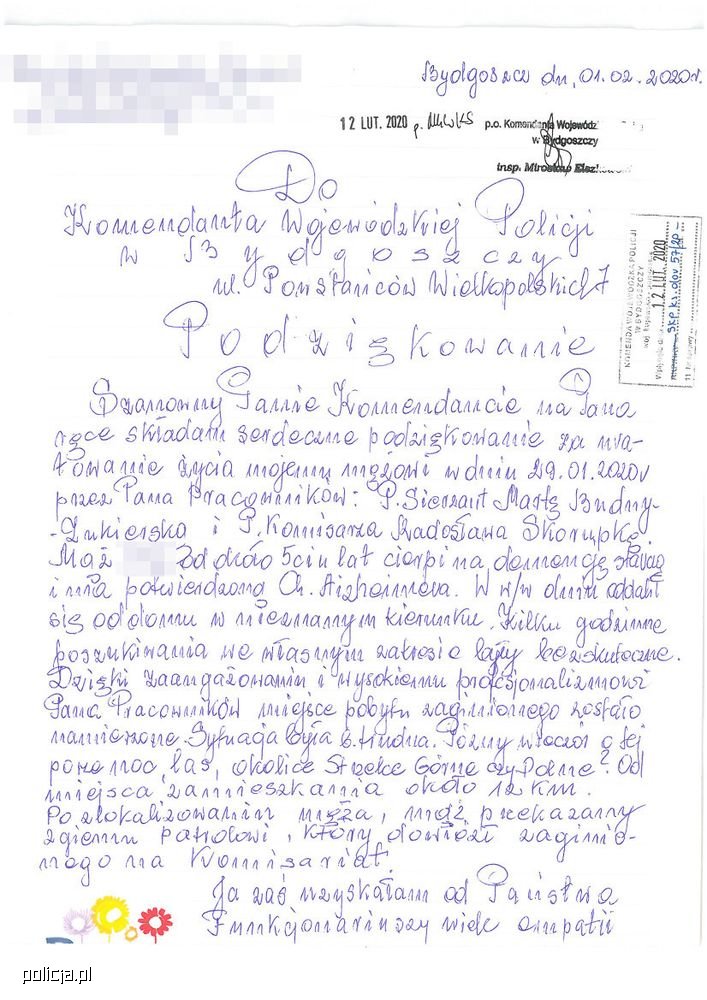 Bydgoszcz dn. 01.02.2020r.
12 LUT. 2020
p.o. Komendanta Wojewódz
w Bydgoszczy
insp. Mirosław Elsz
Do
Komendanta Wojewódzkiej Policji
w Bydgoszczy
ul. Powstańców Wielkopolskich 7
KOMENDA WOJEWÓDZKA POLICJI
W BYDGOSZCZY
12 LUT. 2020
57/20
Podziękowanie
Szanowny Panie Komendancie na Pana
ręce składam serdeczne podziękowanie za ura-
towanie życia mojemu mężowi w dniu 29.01.2020r
przez Pana Pracowników: P. Sierżant Martę Budny-
-Żukierska i P. Komisarza Radosława Skorupkę.
Mąż od około 5ciu lat cierpi na demencję starczą
i ma potwierdzoną Ch. Alzheimera. W w/w dniu oddalił
się od domu w nieznanym kierunku. Kilku godzinne
poszukiwania we własnym zakresie były bezskuteczne.
Dzięki zaangażowaniu i wysokiemu profesjonalizmowi
Pana Pracowników miejsce pobytu zaginionego zostało
namierzone. Sytuacja była b. trudna. Późny wieczór o tej
porze noc, las, okolice Strzelce Górne czy Dolne? Od
miejsca zamieszkania około 12 km.
Po zlokalizowaniu męża, mąż przekazany
patrolowi, który dowiózł zaginio-
nego na Komisariat.
Ja zaś uzyskałam od Państwa
Funkcjonariuszy wiele empatii
policja.pl